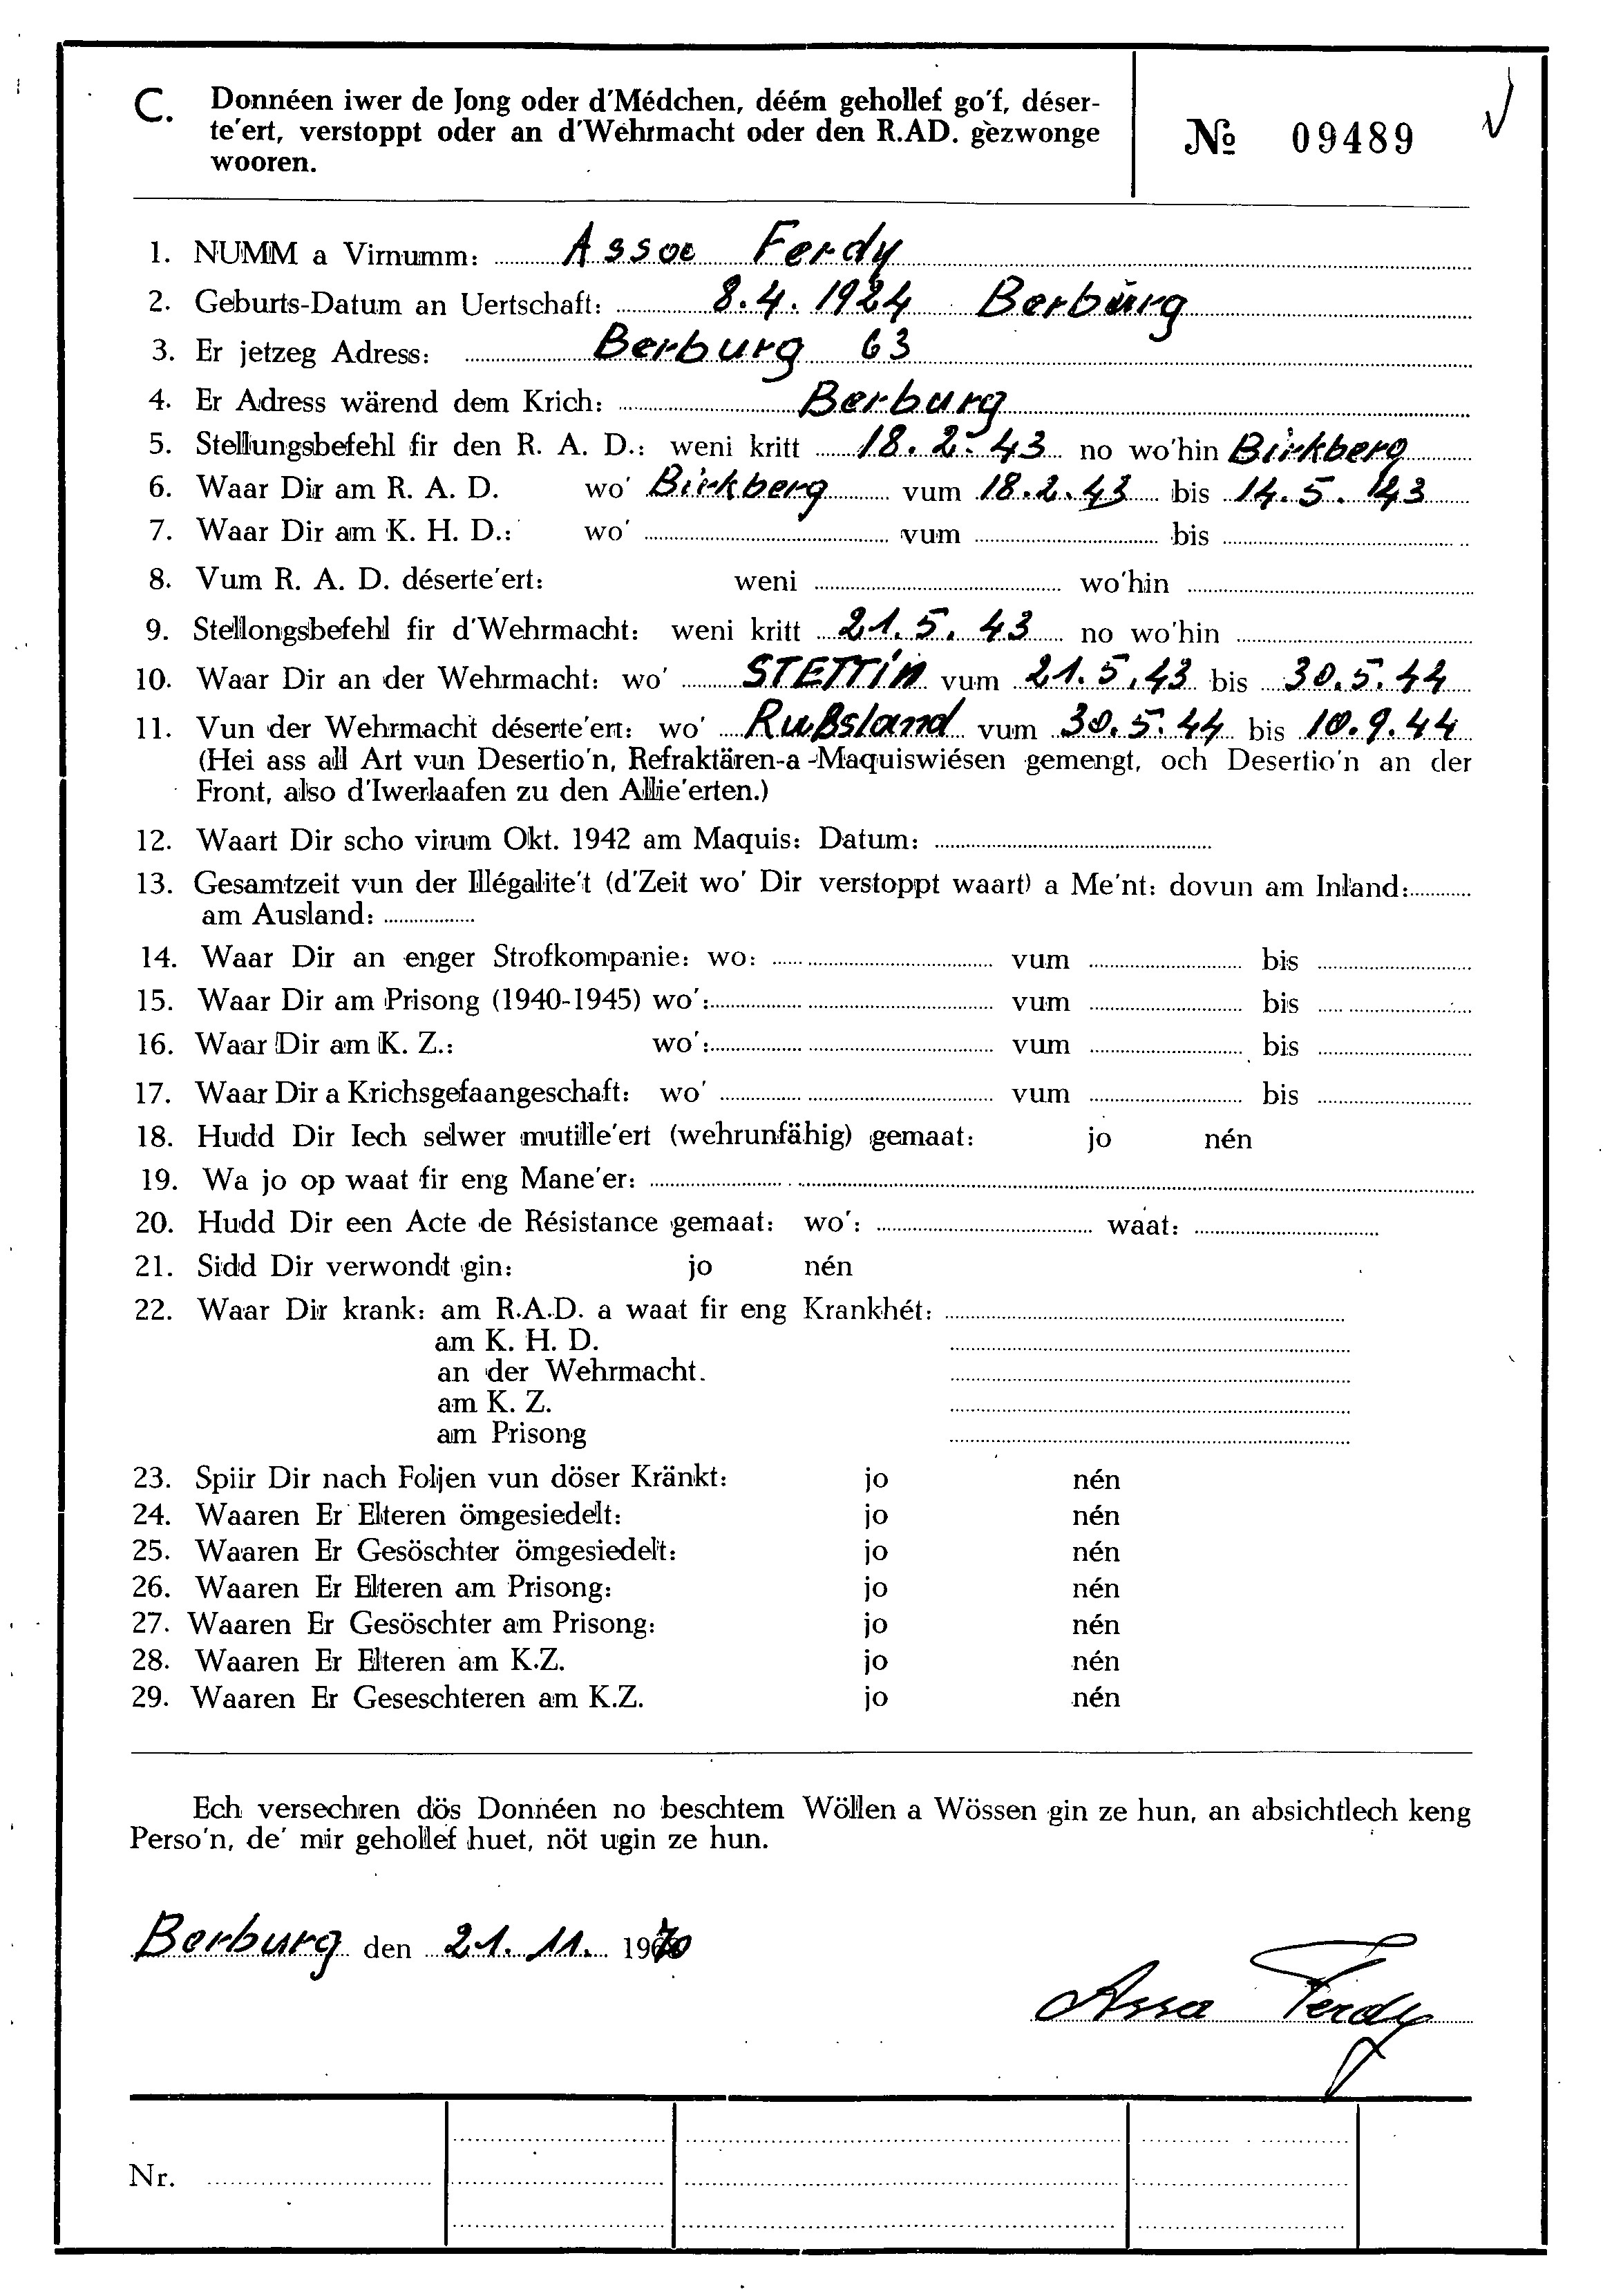 C. Donnéen iwer de Jong oder d'Médchen, déém gehollef go'f, déser-
te'ert, verstoppt oder an d'Wehrmacht oder den R.AD. gezwonge
wooren.
№ 09489
1. NUMM a Virnumm: Ferdy
2. Geburts-Datum an Uertschaft: 8.4.1924 Berburg
3. Er jetzeg Adress: Berburg 63
4. Er Adress wärend dem Krich: Berburg
5. Stellungsbefehl fir den R. A. D.: weni kritt 18.2.43 no wo'hin Birkberg
6. Waar Dir am R. A. D. wo' Birkberg vum 18.2.43 bis 14.5.43
7. Waar Dir am K. H. D.: wo' vum bis
8. Vum R. A. D. déserte'ert: weni wo'hin
9. Stellongsbefehl fir d'Wehrmacht: weni kritt 21.5.43 no wo'hin
10. Waar Dir an der Wehrmacht: wo' STETTiN vum 21.5.43 bis 30.5.44
11. Vun der Wehrmacht déserte'ert: wo' Rußsland vum 30.5.44 bis 10.9.44
(Hei ass all Art vun Desertio'n, Refraktären-a -Maquiswiésen gemengt, och Desertio'n an der
Front, also d'Iwerlaafen zu den Allie'erten.)
12. Waart Dir scho virum Okt. 1942 am Maquis: Datum:
13. Gesamtzeit vun der Illégalite't (d'Zeit wo' Dir verstoppt waart) a Me'nt: dovun am Inland:
am Ausland:
14. Waar Dir an enger Strofkompanie: wo: vum bis
15. Waar Dir am Prisong (1940-1945) wo': vum bis
16. Waar Dir am K. Z.: wo': vum bis
17. Waar Dir a Krichsgefaangeschaft: wo' vum bis
18. Hudd Dir Iech selwer mutille'ert (wehrunfähig) gemaat: jo nén
19. Wa jo op waat fir eng Mane'er:
20. Hudd Dir een Acte de Résistance gemaat: wo': waat:
21. Sidd Dir verwondt gin: jo nén
22. Waar Dir krank: am R.A.D. a waat fir eng Krankhét:
am K. H. D.
an der Wehrmacht.
am K. Z.
am Prisong
23. Spiir Dir nach Foljen vun döser Kränkt: jo nén
24. Waaren Er Elteren ömgesiedelt: jo nén
25. Waaren Er Gesöschter ömgesiedelt: jo nén
26. Waaren Er Elteren am Prisong: jo nén
27. Waaren Er Gesöschter am Prisong: jo nén
28. Waaren Er Elteren am K.Z. jo nén
29. Waaren Er Geseschteren am K.Z. jo nén
Ech versechren dös Donnéen no beschtem Wöllen a Wössen gin ze hun, an absichtlech keng
Perso'n, de' mir gehollef huet, nöt ugin ze hun.
Berburg den 21. 11. 1970
Assa Ferdy
Nr.